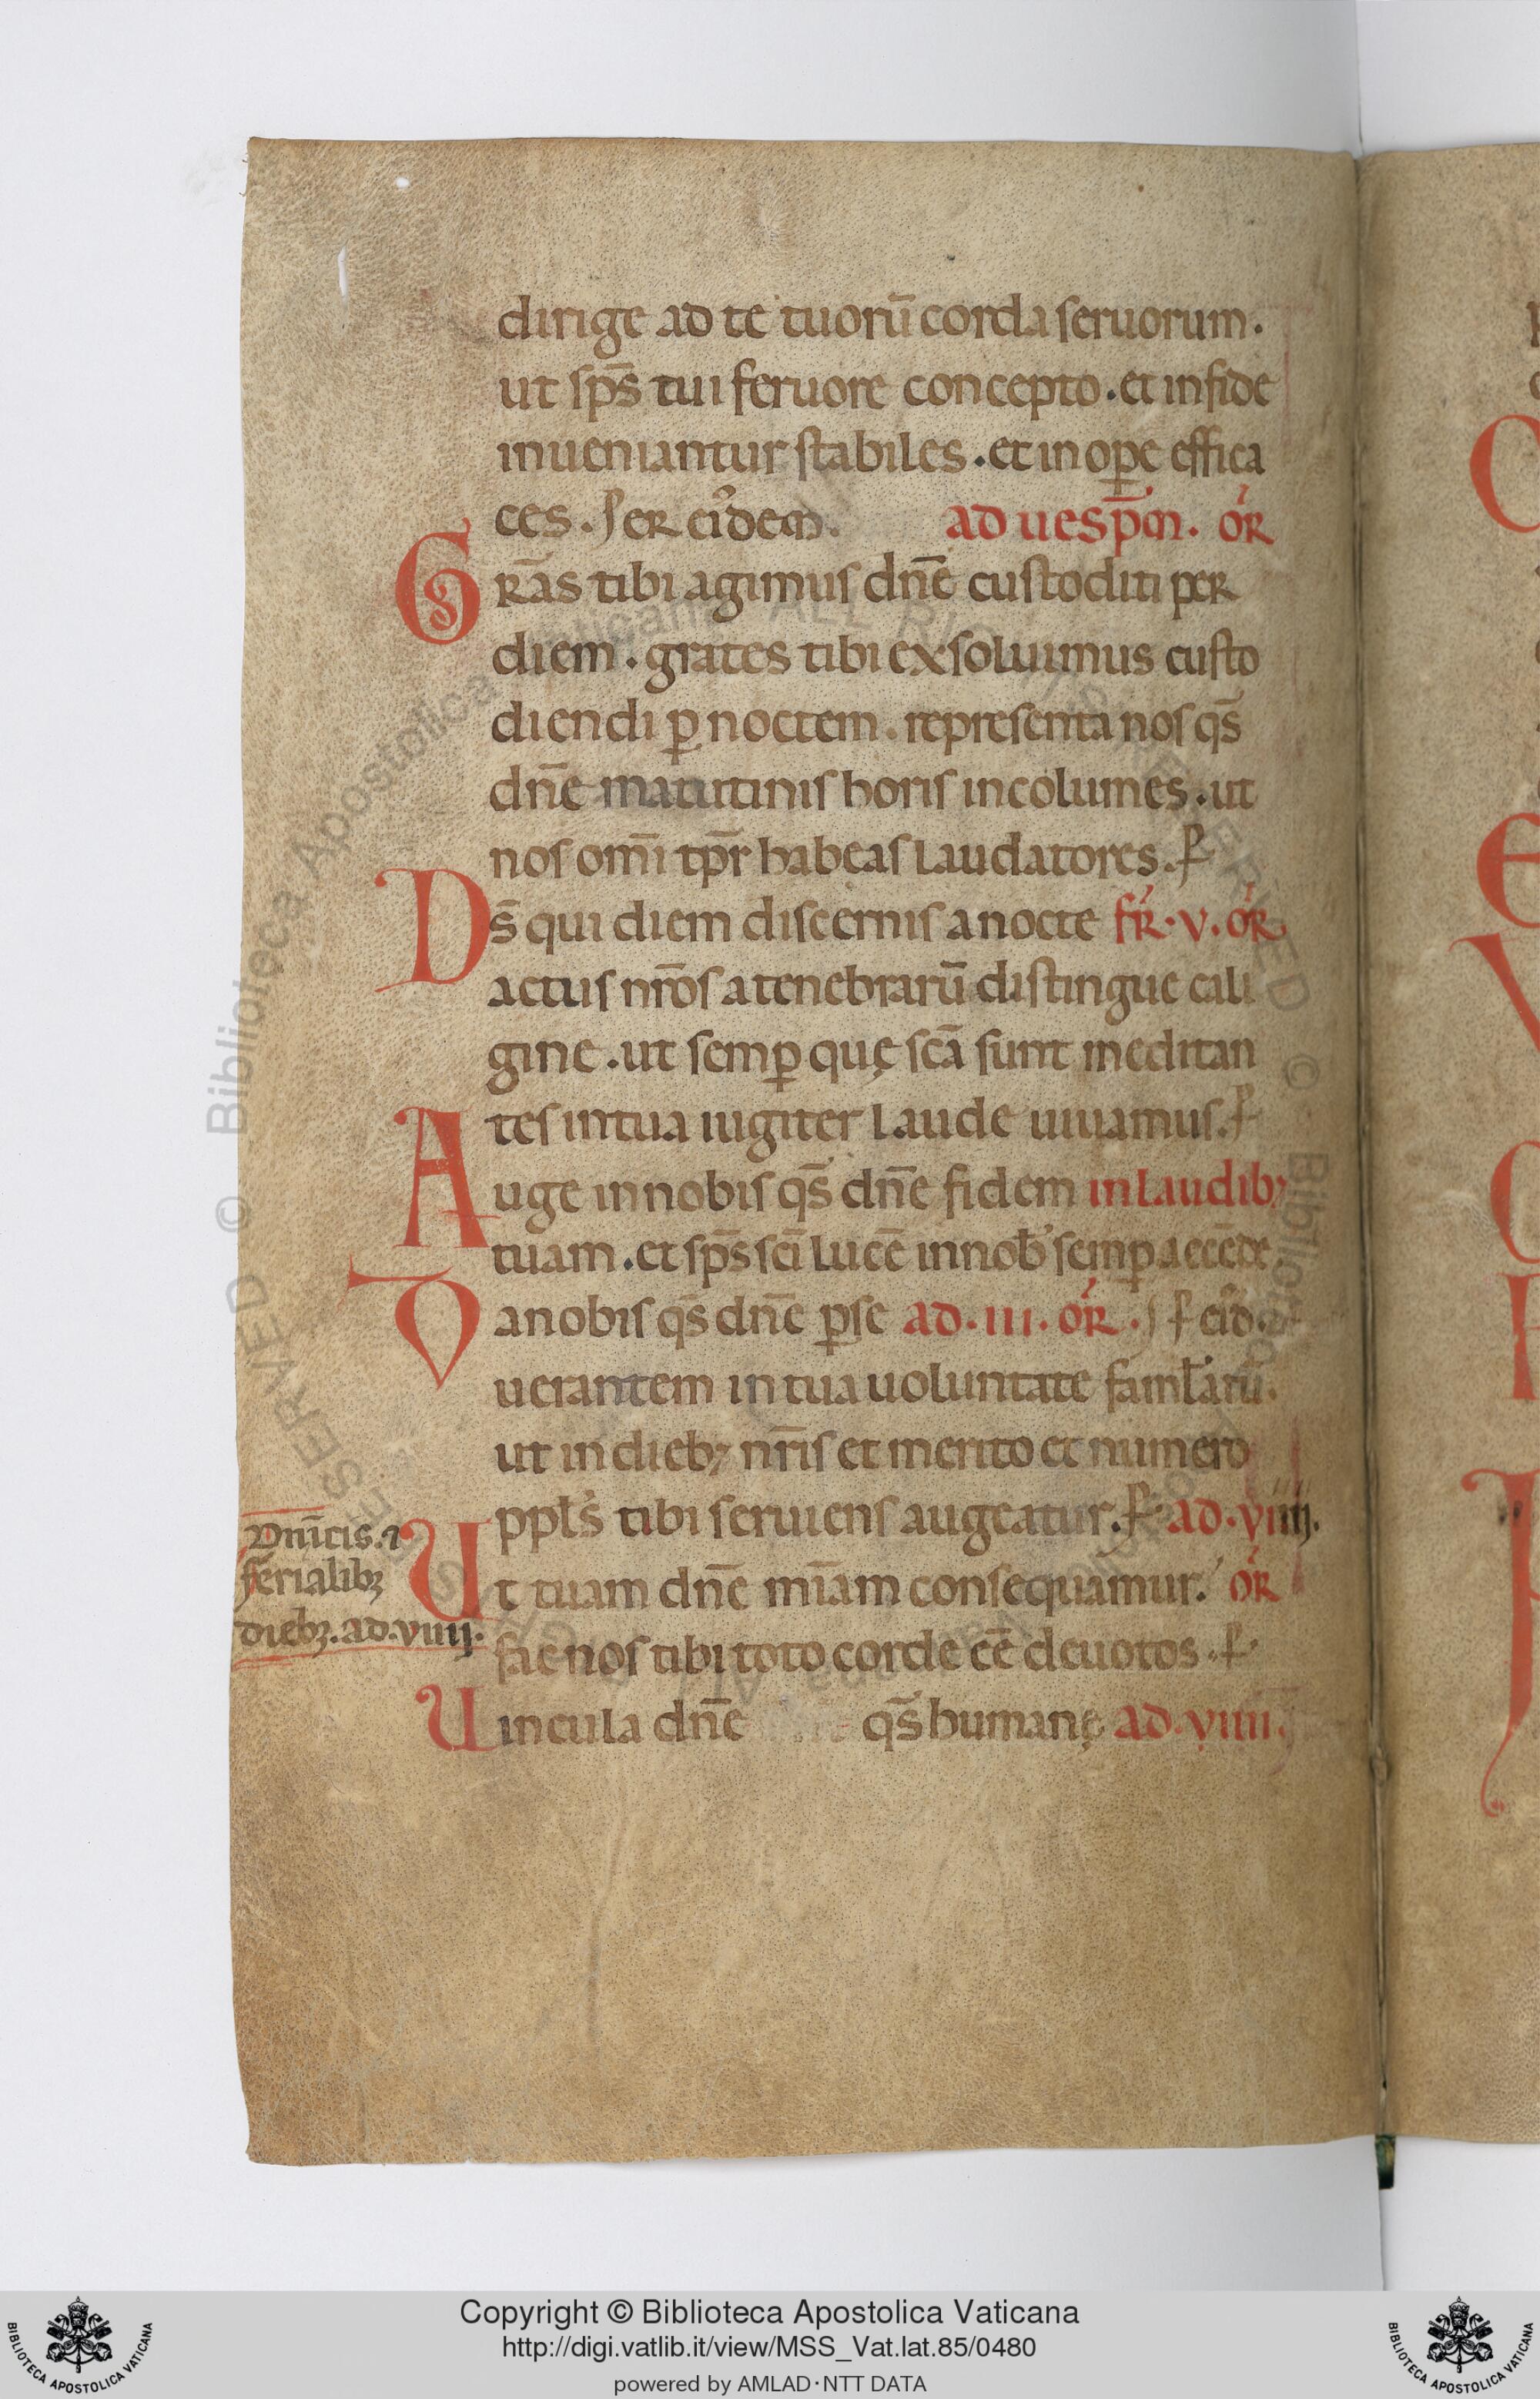 dirige ad te tuorū corda seruorum.
ut sp̄s tui feruore concepto. et in fide
inueniantur stabiles. et in ope effica
ces. Per eūdem. ad uesp̄m. or̄
Grās tibi agimus dn̄e custoditi per
diem. grates tibi exsoluimus custo
diendi ꝑ noctem. representa nos qs̄
dn̄e matutinis horis incolumes. ut
nos omī tp̄r habeas laudatores. P
Ds̄ qui diem discernis a nocte fr̄. v. or̄
actus nr̄os a tenebrarū distingue cali
gine. ut semꝑ quę sc̄a sunt meditan
tes in tua iugiter laude uiuamus. P
Auge in nobis qs̄ dn̄e fidem in laudibꝫ
tuam. et sp̄s sc̄i lucē in nob̄ semꝑ accēde.
Da nobis qs̄ dn̄e ꝑse ad. iii. or̄. P eūd.
uerantem in tua uoluntate famł̄atū.
ut in diebꝫ nr̄is et merito et numero
ppłs tibi seruiens augeatur. P ad. viiii.
Ut tuam dn̄e mīam consequamur. or̄
fac nos tibi toto corde eē deuotos. P
Uincula dn̄e qs̄ humanę ad. viiii.
Dn̄icis. ⁊
ferialibꝫ
diebꝫ. ad. viiii.
© Biblioteca Apostolica Vaticana ALL RIGHTS RESERVED
Copyright © Biblioteca Apostolica Vaticana
http://digi.vatlib.it/view/MSS_Vat.lat.85/0480
powered by AMLAD·NTT DATA
BIBLIOTECA APOSTOLICA VATICANA
BIBLIOTECA APOSTOLICA VATICANA